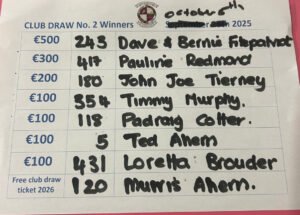 CLUB DRAW No. 2 Winners October 5th 2025
€500 243 Dave & Bernie Fitzpatrick
€300 417 Pauline Redmond
€200 180 John Joe Tierney
€100 354 Timmy Murphy.
€100 118 Padraig Cotter.
€100 5 Ted Ahern
€100 431 Loretta Brouder
Free club draw ticket 2026 120 Munris Ahern.